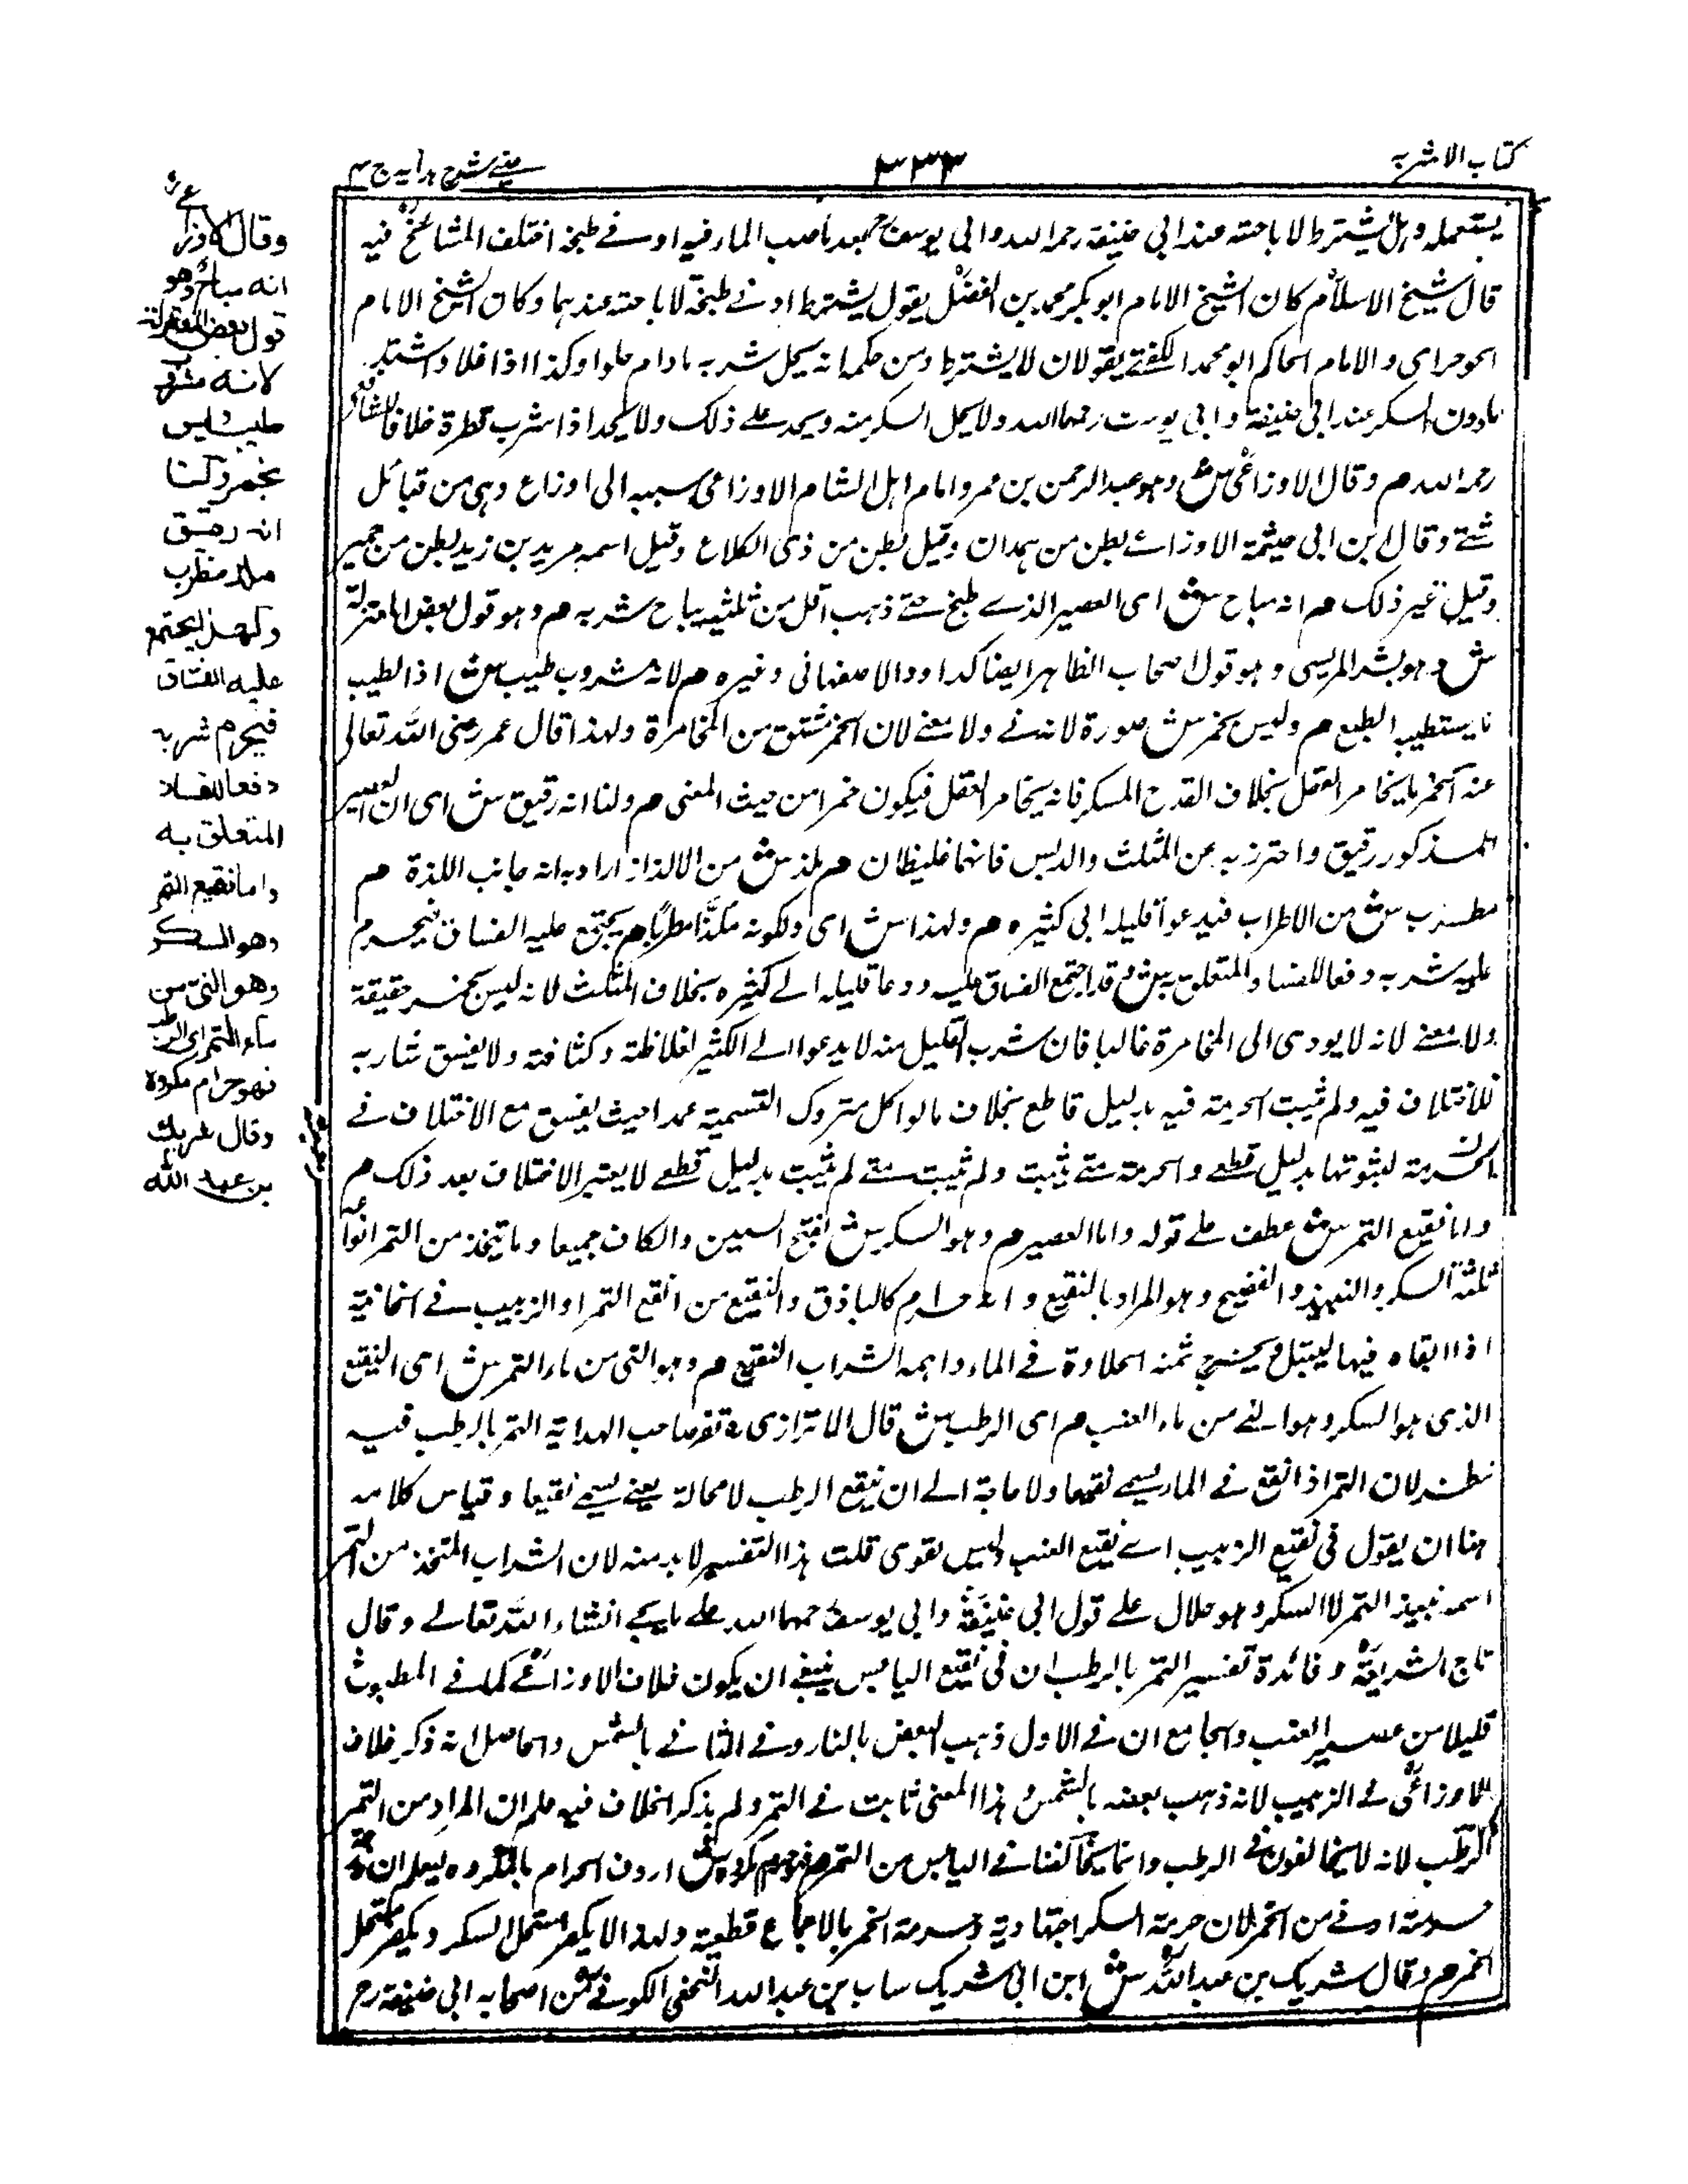 كتاب الاشربه
٣٣٣
عيني شرح هدايه ج ٤
يستعمله وهل يشترط لاباحته عند ابي حنيفة رحمه الله وابي يوسف بعد ما صب الماء فيه ادنى طبخة اختلف المشائخ فيه
قال شيخ الاسلام كان الشيخ الامام ابو بكر محمد بن الفضل يقول يشترط ادنى طبخة لاباحته عندهما وكان الشيخ الامام
والامام الحاكم ابو محمد الكفني يقولان لا يشترط ومن حكمه انه يحل شربه ما دام حلوا وكذا اذا غلا واشتد
ما دون السكر عند ابي حنيفة وابي يوسف رحمهما الله ولا يحل السكر منه ويحد على ذلك ولا يحد اذا شرب قطرة خلافا للشافعي
رحمه الله م وقال الاوزاعي ش وهو عبد الرحمن بن عمرو امام اهل الشام الاوزاعي نسبه الى اوزاع وهي من قبائل
شتى وقال ابن ابي خيثمة الاوزاعي بطن من همدان وقيل بطن من ذي الكلاع وقيل اسمه مريد بن زيد بطن من حمير
وقيل غير ذلك م انه مباح ش اى العصير الذي طبخ حتى ذهب اقل من ثلثيه يباح شربه م وهو قول بعض المعتزلة
ش وهو بشر المريسي وهو قول اصحاب الظاهر ايضا كداود الاصفهاني وغيره م لانه مشروب طيب ش اذ الطيب
ما يستطيبه الطبع م وليس بخمر ش صورة لانه نى ولا معنى لان الخمر مشتق من المخامرة ولهذا قال عمر رضي الله تعالى
عنه الخمر ما يخامر العقل بخلاف القدح المسكر فانه يخامر العقل فيكون خمرا من حيث المعنى م ولنا انه رقيق ش اى ان العصير
المذكور رقيق واحترز به عن المثلث والدبس فانهما غليظان م ملذ ش من الالذاذ اراد به انه جانب اللذة م
مطرب ش من الاطراب فيدعو قليله الى كثيره م ولهذا ش اى ولكونه ملذا مطربا م يجتمع عليه الفساق فيحرم
عليه شربه دفعا للفساد المتعلق به ش وقد اجتمع الفساق عليه ودعا قليله الى كثيره بخلاف المثلث لانه ليس بخمر حقيقة
ولا معنى لانه لا يودى الى المخامرة غالبا فان شرب القليل منه لا يدعو الى الكثير لغلاظته وكثافته ولا يفسق شاربه
للاختلاف فيه ولم يثبت الحرمة فيه بدليل قاطع بخلاف ما لو اكل متروك التسمية عمدا حيث يفسق مع الاختلاف في
الحرمة لثبوتها بدليل قطعي والحرمة متى يثبت ولم يثبت متى لم يثبت بدليل قطعي لا يعتبر الاختلاف بعد ذلك م
واما نقيع التمر ش عطف على قوله واما العصير م وهو السكر ش بفتح السين والكاف جميعا وما يتخذ من التمر انواع
ثلثة السكر والنبيذ والفضيخ وهو المراد بالنقيع و حرام كالباذق والنقيع من انقع التمر او الزبيب في الخابية
اذا ابقاه فيها ليبتل ويخرج منه الحلاوة في الماء واسمه الشراب النقيع م وهو النى من ماء التمر ش اى النقيع
الذي هو السكر وهو النى من ماء العنب م اى الرطب ش قال الاترازى تفسر صاحب الهداية التمر بالرطب فيه
نظر لان التمر اذا انقع في الماء يسمى نقيعا ولا حاجة الى ان ينقع الرطب لا محالة يعنى يسمى نقيعا وقياس كلامه
هنا ان يقول فى نقيع الزبيب اى نقيع العنب وليس بقوى قلت هذا التفسير لا بد منه لان الشراب المتخذ من التمر
اسمه نبيذ التمر لا السكر وهو حلال على قول ابي حنيفة وابي يوسف رحمهما الله على ما يجئ انشاء الله تعالى وقال
تاج الشريعة وفائدة تفسير التمر بالرطب ان فى نقيع اليابس ينبغي ان يكون خلاف الاوزاعي كما في المطبوخ
قليلا من عصير العنب والجامع ان في الاول ذهب البعض بالنار وفي الثاني بالشمس والحاصل انه ذكر خلاف
الاوزاعي في الزبيب لانه ذهب بعضه بالشمس هذا المعنى ثابت في التمر ولم يذكر الخلاف فيه علم ان المراد من التمر
الرطب لانه لا يخالفون في الرطب وانما يخالفنا في اليابس من التمر م فهو حرام مكروه ش اردف الحرام بالمكروه ليعلم ان
حرمته ادنى من الخمر لان حرمة السكر اجتهادية وحرمة الخمر بالاجماع قطعية ولهذا لا يكفر مستحل السكر ويكفر مستحل
الخمر م وقال شريك بن عبد الله ش ابن ابى شريك بن عبد الله النخعي الكوفي من اصحابه ابي حنيفة رح
وقال الاوزاعي
انه مباح وهو
قول بعض المعتزلة
لانه مشروب
طيب وليس
بخمر ولنا
انه رقيق
ملذ مطرب
ولهذا يجتمع
عليه الفساق
فيحرم شربه
دفعا للفساد
المتعلق به
واما نقيع التمر
وهو السكر
وهو النئ من
ماء التمر اى الرطب
فهو حرام مكروه
وقال شريك
بن عبد الله